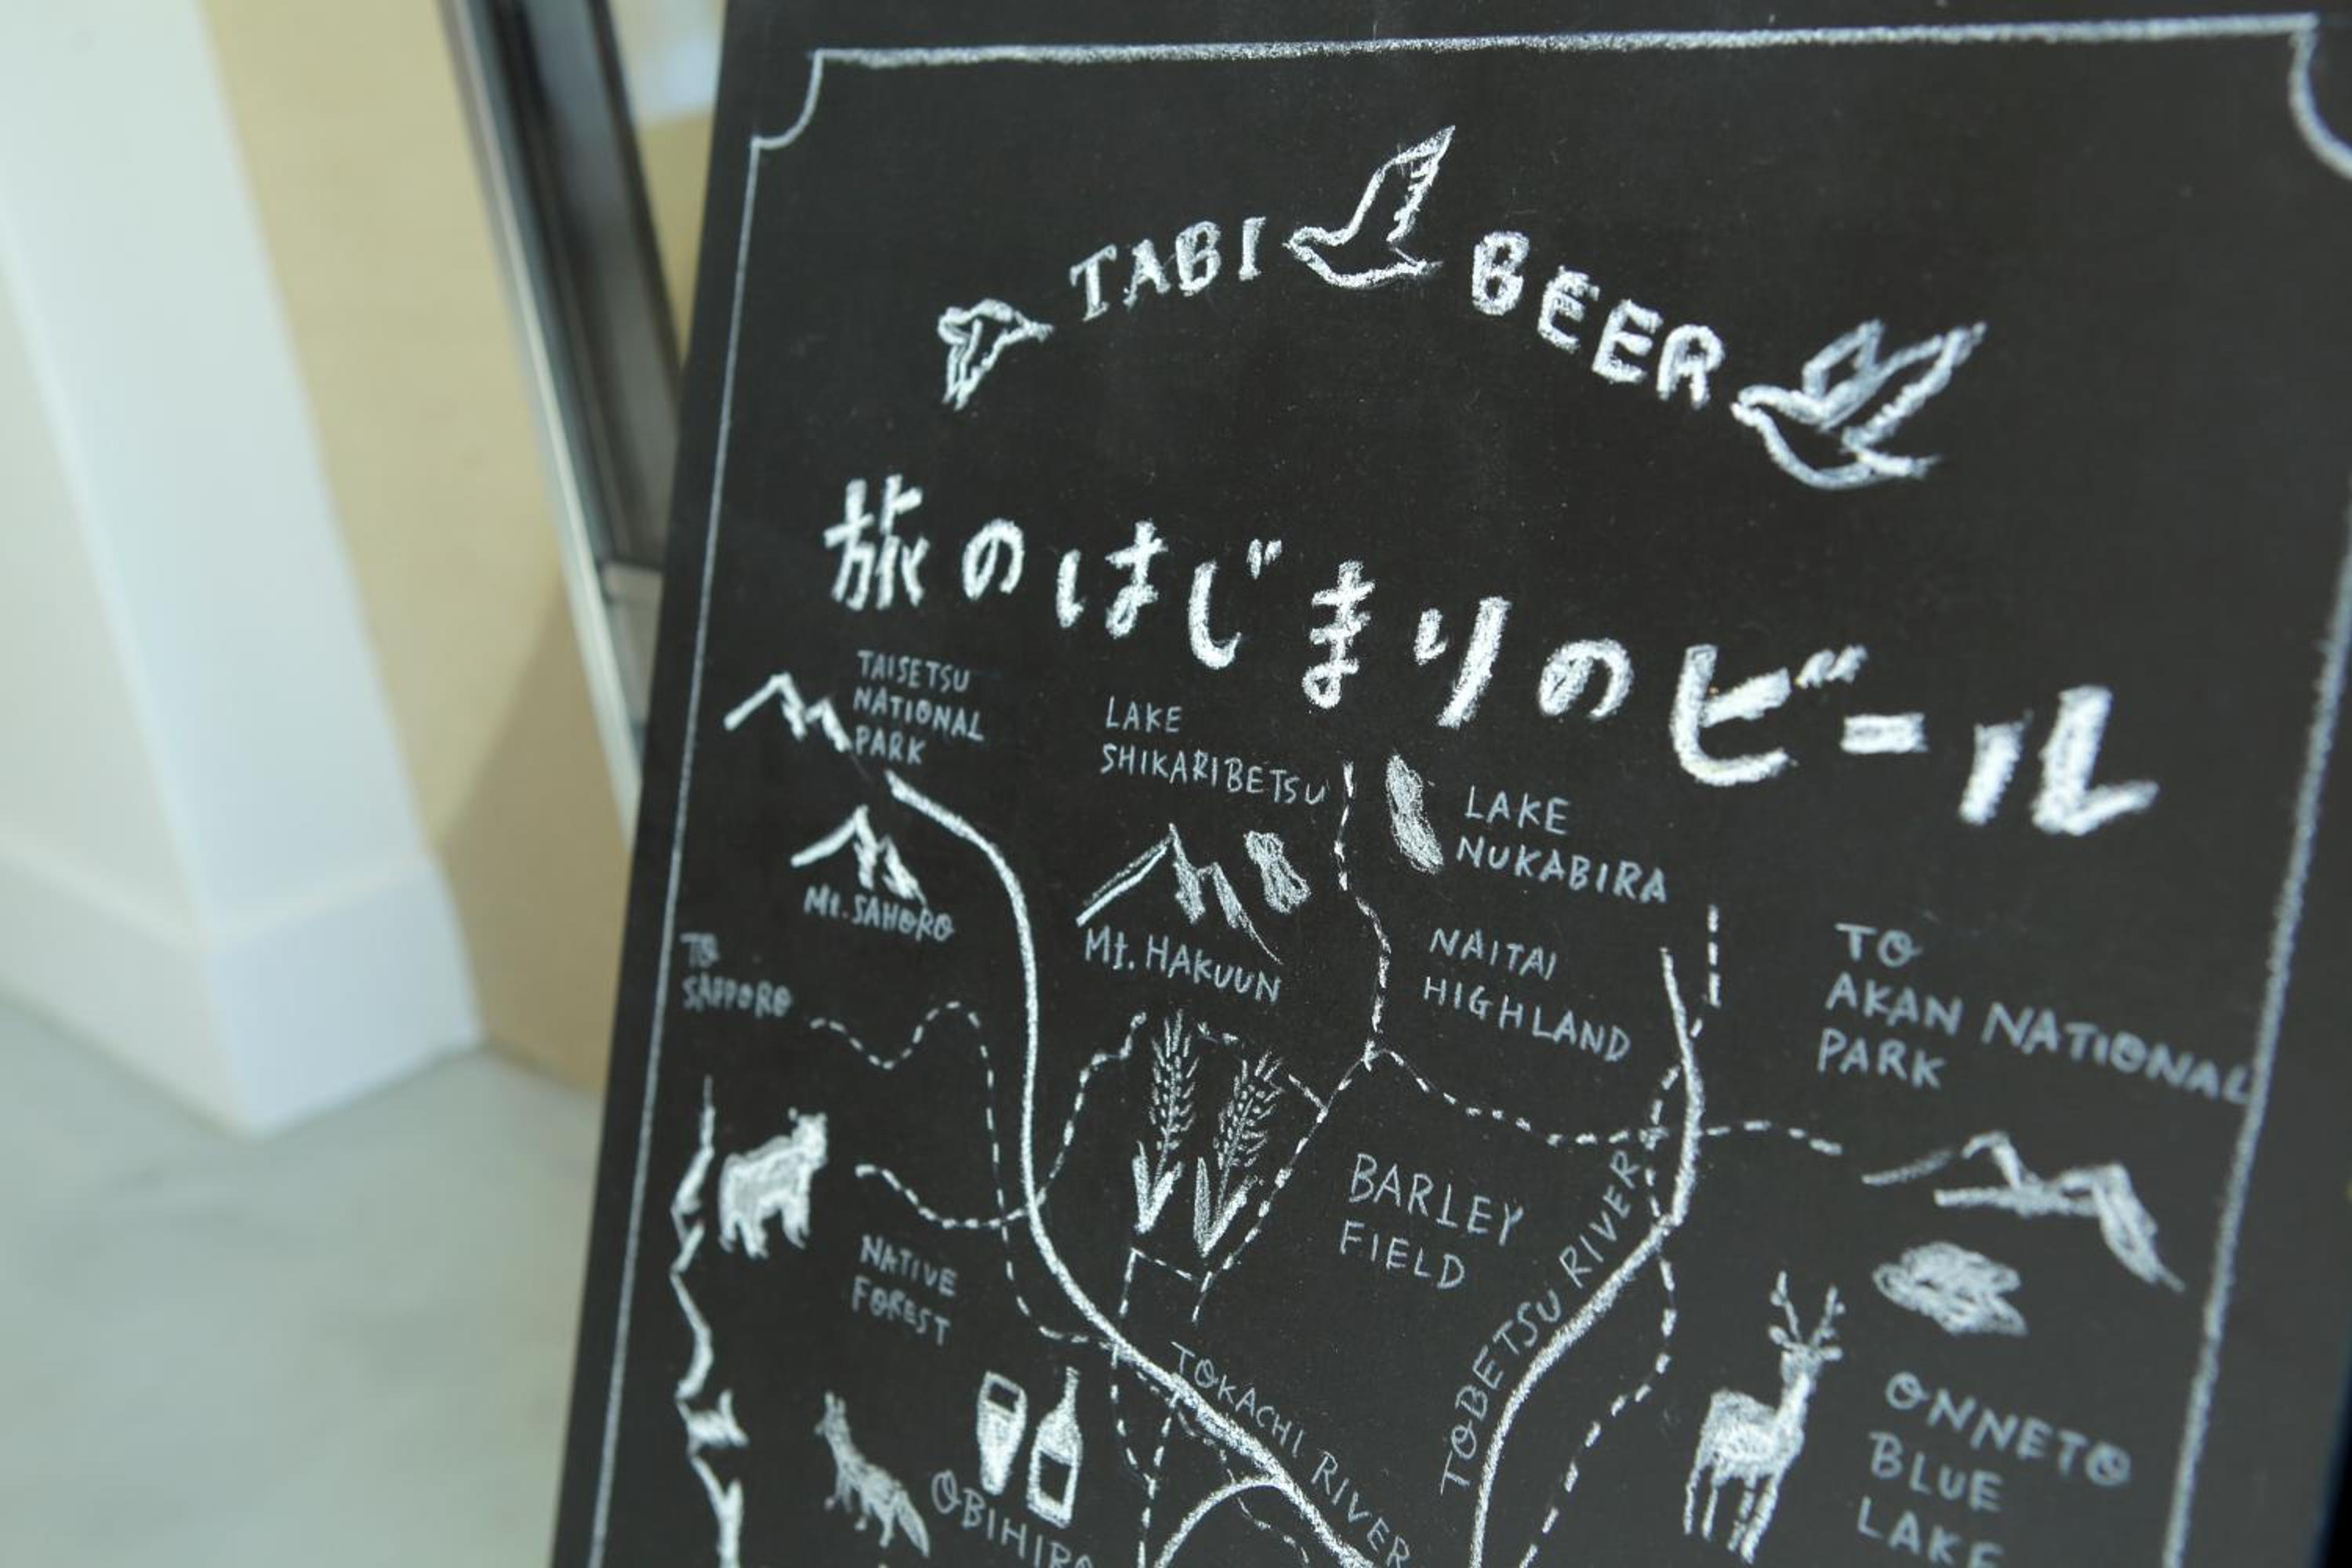 TABI BEER
旅のはじまりのビール
TAISETSU
NATIONAL
PARK
LAKE
SHIKARIBETSU
LAKE
NUKABIRA
Mt. SAHORO
Mt. HAKUUN
NAITAI
HIGHLAND
TO
SAPPORO
TO
AKAN NATIONAL
PARK
BARLEY
FIELD
NATIVE
FOREST
TOKACHI RIVER
TOBETSU RIVER
OBIHIRO
ONNETO
BLUE
LAKE